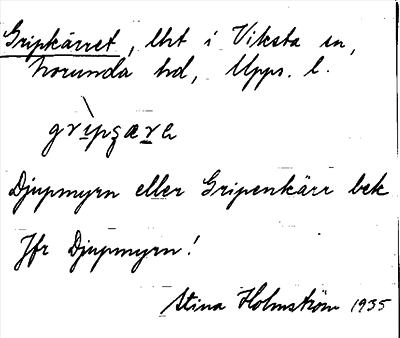 Gripkärret, lht i Viksta sn,
Norunda hd, Upps. l.
Djupmyrn eller Gripenkärr bek
Jfr Djupmyrn!
Stina Holmström 1935